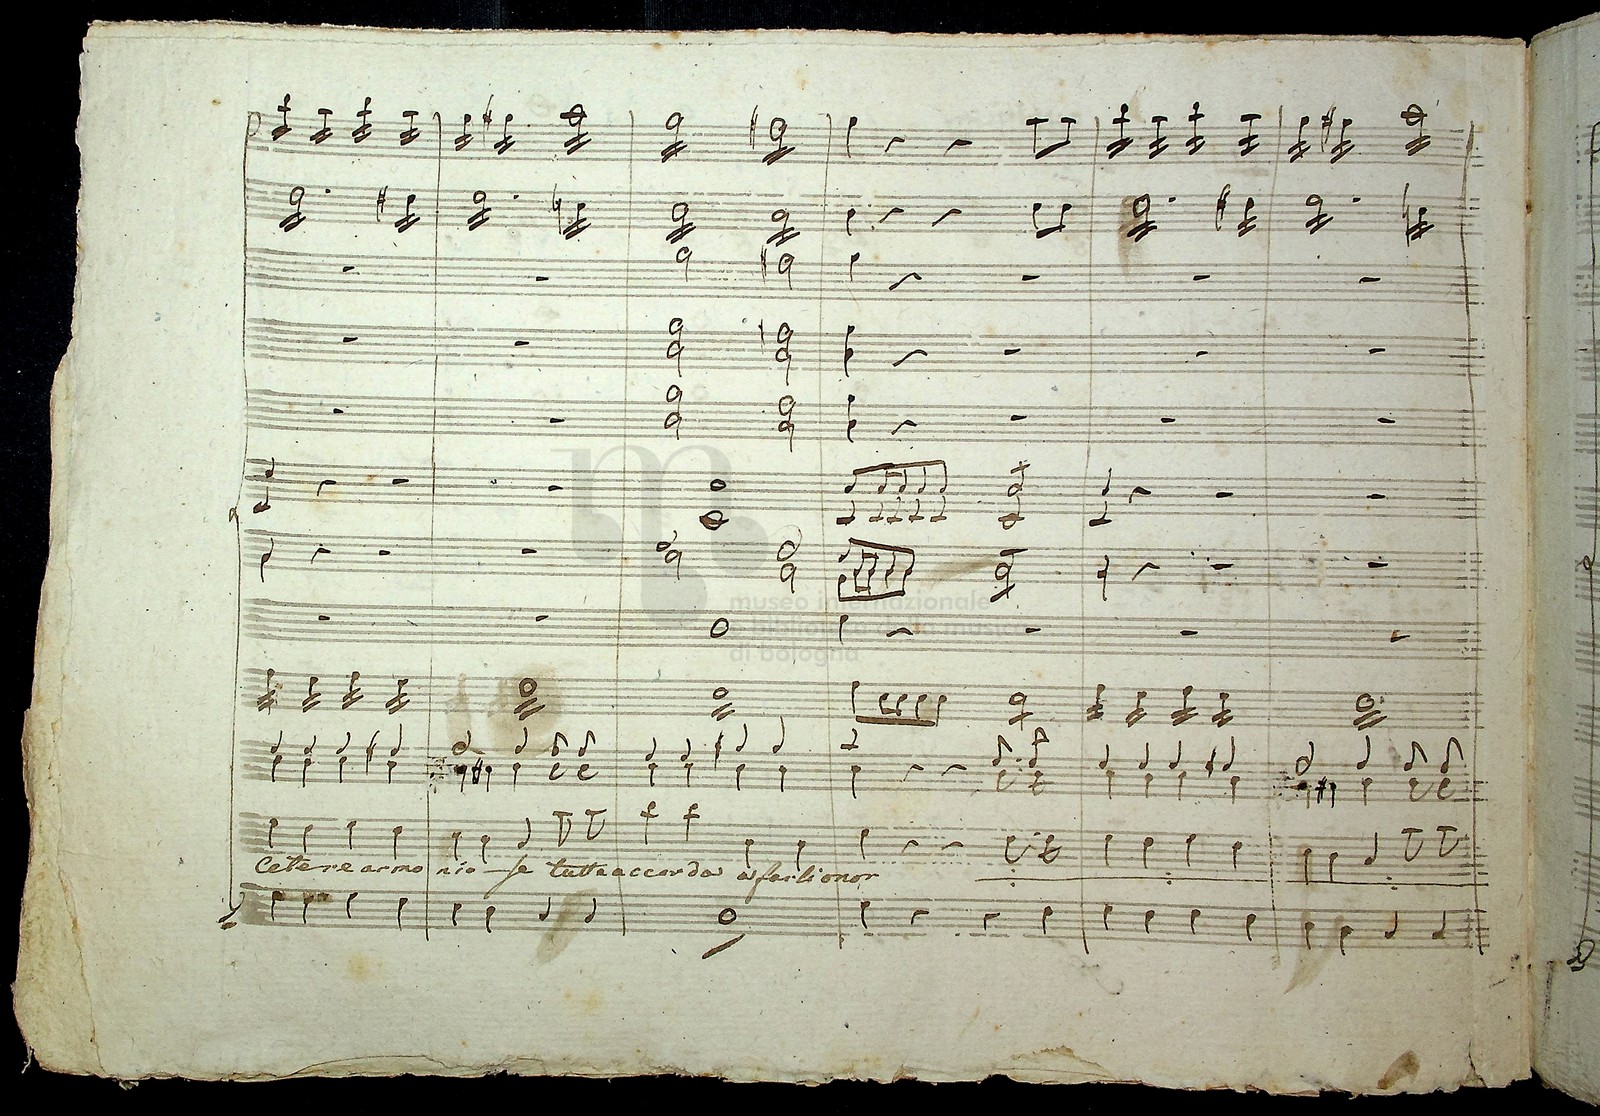 museo internazionale
e biblioteca della musica
di bologna
Cetere armo nio se tutta accorda a farli onor